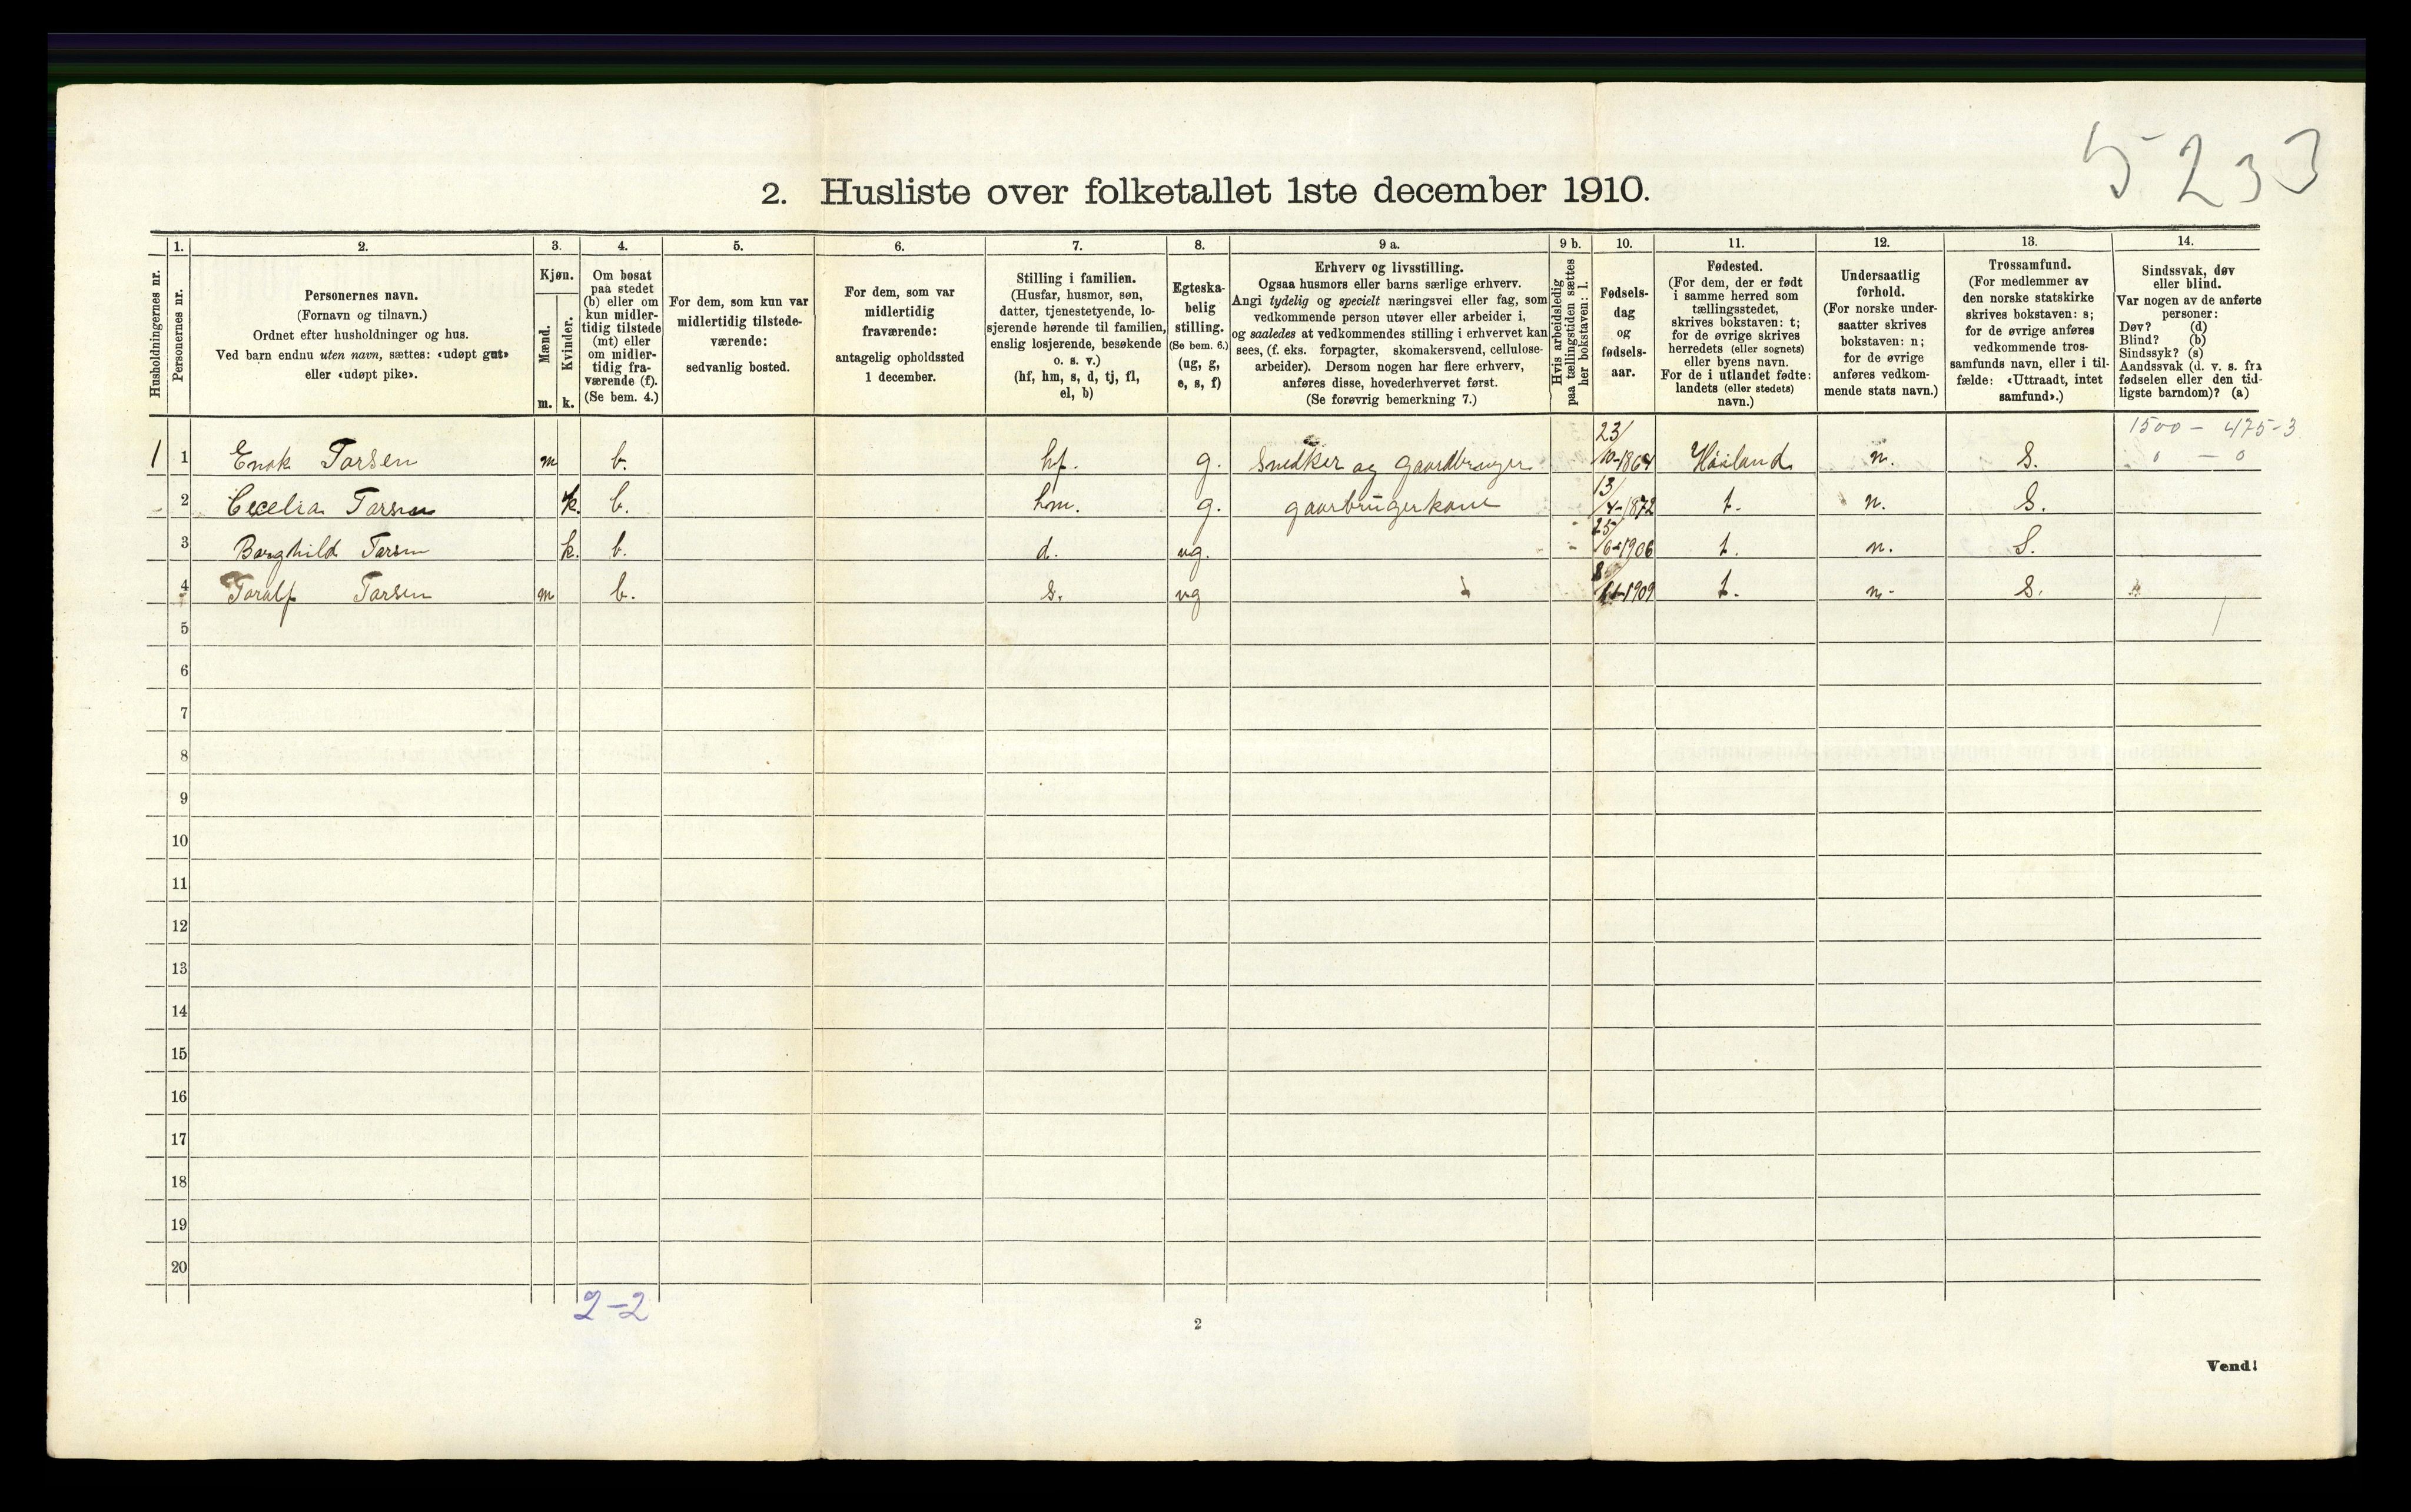 5233
2. Husliste over folketallet 1ste december 1910.
Husholdningernes nr.
1.
Personernes nr.
2.
Personernes navn.
(Fornavn og tilnavn.)
Ordnet efter husholdninger og hus.
Ved barn endnu uten navn, sættes: «udøpt gut»
eller «udøpt pike».
3.
Kjøn.
Mænd.
Kvinder.
m. k.
4.
Om bosat
paa stedet
(b) eller om
kun midler-
tidig tilstede
(mt) eller
om midler-
tidig fra-
værende (f).
(Se bem. 4.)
5.
For dem, som kun var
midlertidig tilstede-
værende:
sedvanlig bosted.
6.
For dem, som var
midlertidig
fraværende:
antagelig opholdssted
1 december.
7.
Stilling i familien.
(Husfar, husmor, søn,
datter, tjenestetyende, lo-
sjerende hørende til familien,
enslig losjerende, besøkende
o. s. v.)
(hf, hm, s, d, tj, fl,
el, b)
8.
Egteska-
belig
stilling.
(Se bem. 6.)
(ug, g,
e, s, f)
9 a.
Erhverv og livsstilling.
Ogsaa husmors eller barns særlige erhverv.
Angi tydelig og specielt næringsvei eller fag, som
vedkommende person utøver eller arbeider i,
og saaledes at vedkommendes stilling i erhvervet kan
sees, (f. eks. forpagter, skomakersvend, cellulose-
arbeider). Dersom nogen har flere erhverv,
anføres disse, hovederhvervet først.
(Se forøvrig bemerkning 7.)
9 b.
Hvis arbeidsledig
paa tællingstiden sættes
her bokstaven: l.
10.
Fødsels-
dag
og
fødsels-
aar.
11.
Fødested.
(For dem, der er født
i samme herred som
tællingsstedet,
skrives bokstaven: t;
for de øvrige skrives
herredets (eller sognets)
eller byens navn.
For de i utlandet fødte:
landets (eller stedets)
navn.)
12.
Undersaatlig
forhold.
(For norske under-
saatter skrives
bokstaven: n;
for de øvrige
anføres vedkom-
mende stats navn.)
13.
Trossamfund.
(For medlemmer av
den norske statskirke
skrives bokstaven: s;
for de øvrige anføres
vedkommende tros-
samfunds navn, eller i til-
fælde: «Uttraadt, intet
samfund».)
14.
Sindssvak, døv
eller blind.
Var nogen av de anførte
personer:
Døv? (d)
Blind? (b)
Sindssyk? (s)
Aandssvak (d. v. s. fra
fødselen eller den tid-
ligste barndom)? (a)
1500 - 475-3
1 1 Enok Torsen m b. hf. g. Snedker og gaardbruger 23/10-1864 Høiland n. S. 0 - 0
2 Cecelia Torsen k. b. hm. g. gaarbrugerkone 13/4-1872 t. n. S.
3 Borghild Torsen k. b. d. ug. 25/6-1906 t. n. S.
4 Toralf Torsen m b. s. ug 8/11-1909 t. n. S.
5
6
7
8
9
10
11
12
13
14
15
16
17
18
19
20
2-2
2
Vend!